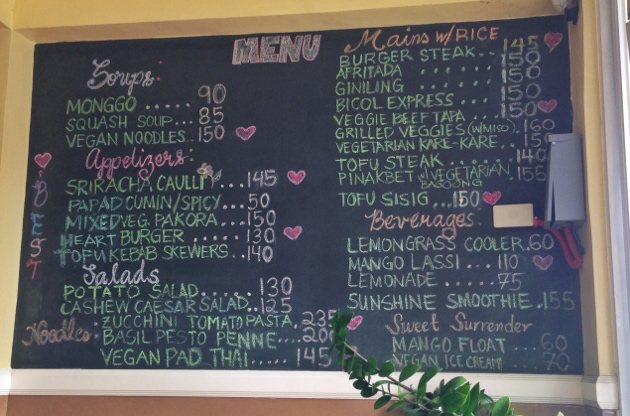 MENU
Soups:
MONGGO ..... 90
SQUASH SOUP... 85
VEGAN NOODLES.. 150
Appetizers:
SRIRACHA CAULI ... 145
PAPAD CUMIN/SPICY... 50
MIXED VEG. PAKORA.... 150
HEART BURGER ...... 130
TOFU KEBAB SKEWERS.. 140
BEST
Salads
POTATO SALAD...... 130
CASHEW CAESAR SALAD.. 125
Noodles:
ZUCCHINI TOMATO PASTA, 235
BASIL PESTO PENNE....
VEGAN PAD THAI...... 145
Mains w/ RICE
BURGER STEAK... 145
AFRITADA ...... 150
GINILING ...... 150
BICOL EXPRESS.... 150
VEGGIE BEEF TAPA ... 150
GRILLED VEGGIES (W/MISO). 160
VEGETARIAN KARE-KARE..
TOFU STEAK ...... 140
PINAKBET VEGETARIAN BAGOONG .. 155
TOFU SISIG ... 150
Beverages
LEMONGRASS COOLER. 60
MANGO LASSI ... 110
LEMONADE ...... 75
SUNSHINE SMOOTHIE . 155
Sweet Surrender
MANGO FLOAT.... 60
VEGAN ICE CREAM 70